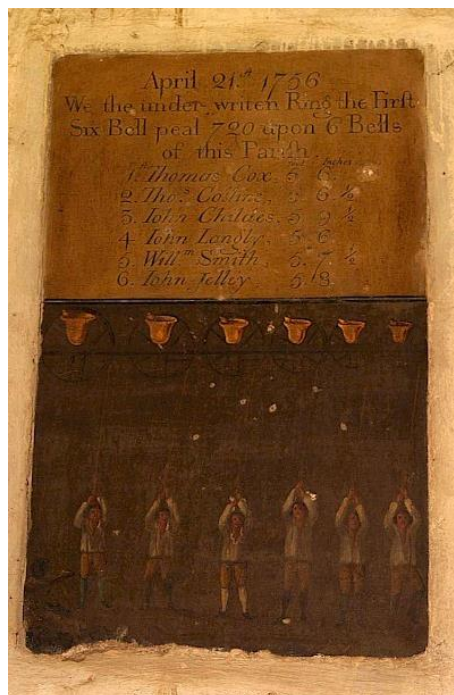 April 21.st 1756
We the under-writen Ring the First
Six Bell peal 720 upon 6 Bells
of this Parish
Feet Inches
1. Thomas Cox. 5 6.
2. Thos Collins, 5 6 ½
3. Iohn Childes. 5 9 ½
4 Iohn Langly, 5. 6
5. Willm Smith 5. 7 ½
6. Iohn Jelley 5. 8.